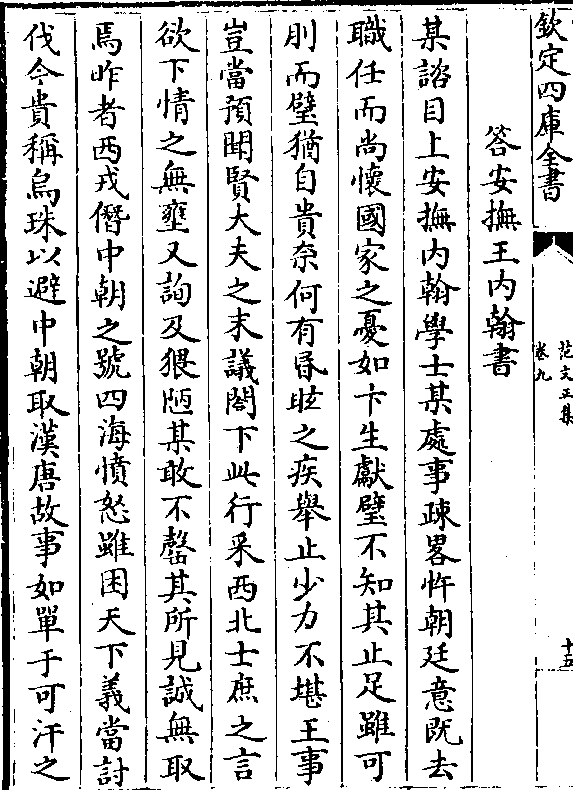 欽定四庫全書
范文正集
卷九
十五
答安撫王内翰書
某諮目上安撫内翰學士某處事疎畧忤朝廷意既去
職任而尚懷國家之憂如卞生獻璧不知其止足雖可
刖而璧猶自貴奈何有昬眩之疾舉止少力不堪王事
豈當預聞賢大夫之末議閤下此行采西北士庶之言
欲下情之無壅又詢及猥陋某敢不罄其所見誠無取
焉昨者西戎僭中朝之號四海憤怒雖困天下義當討
伐今貴稱烏珠以避中朝取漢唐故事如單于可汗之